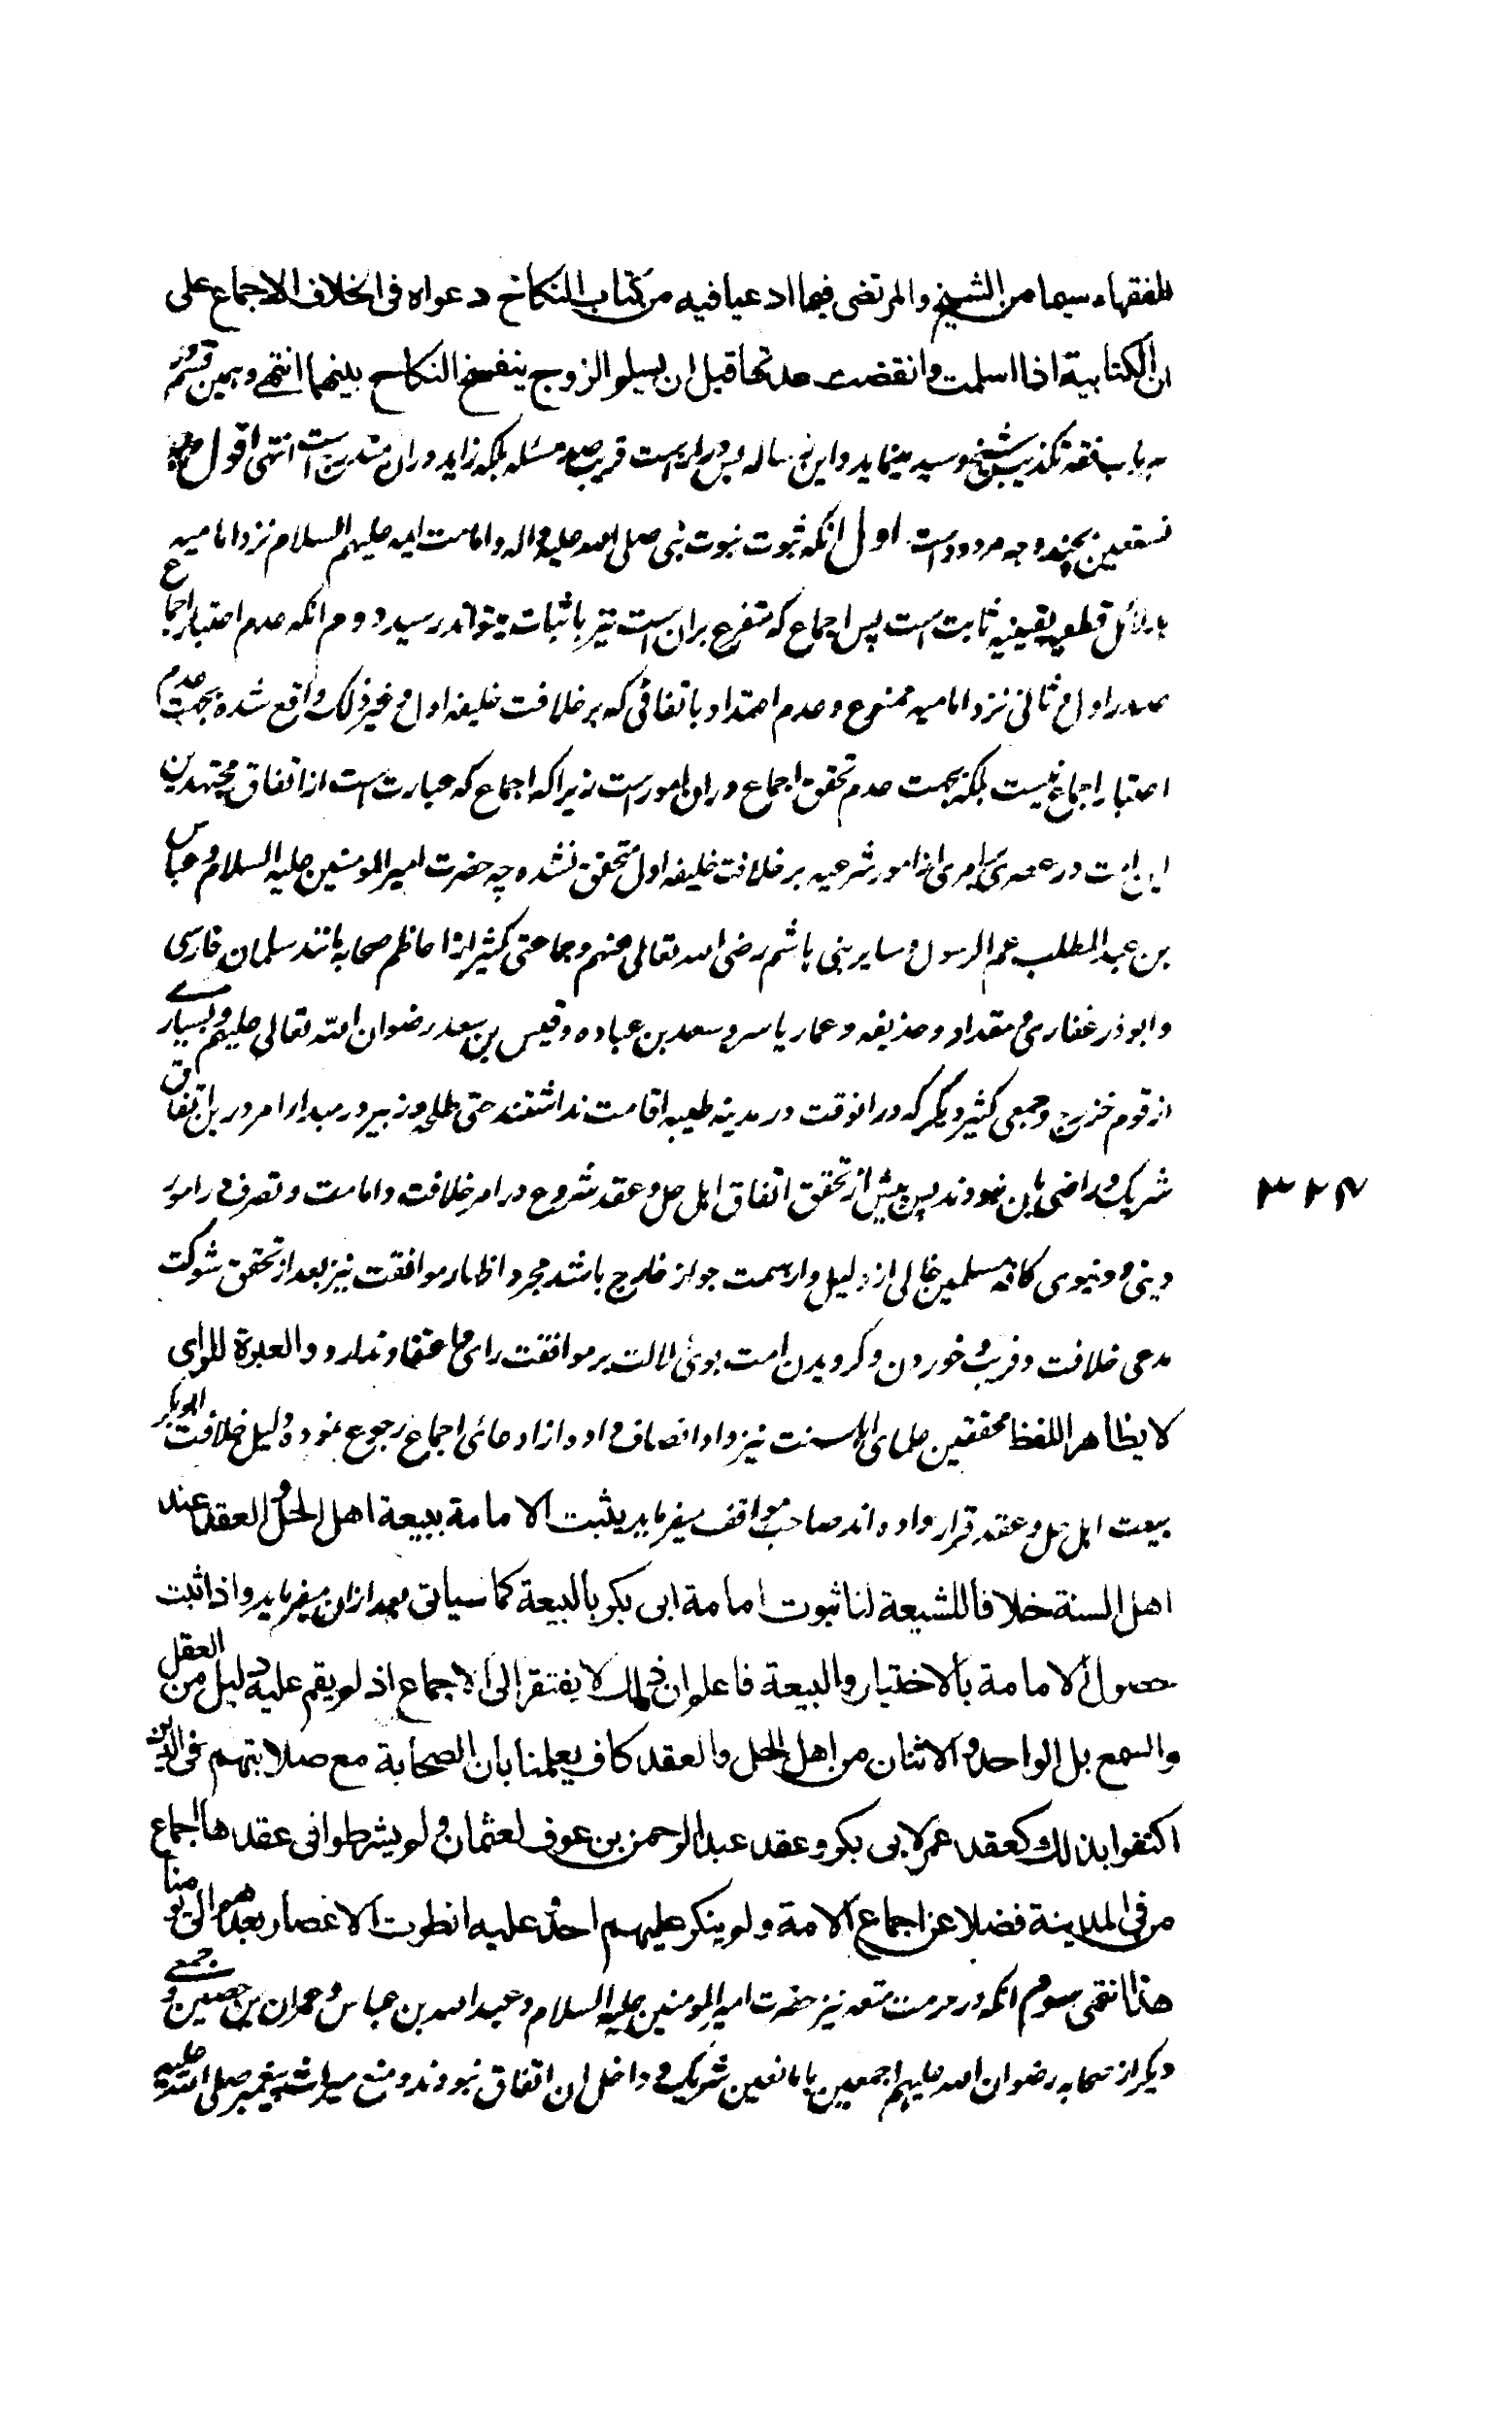 للفقهاء سيما من الشيخ والمرتضى فيما ادعيا فيه من كتاب النكاح دعواه فى الخلاف الاجماع على
ان الكتابية اذا اسلمت وانقضت عدتها قبل ان يسلم الزوج ينفسخ النكاح بينهما انتهى وهمين قسم در
هر باب فقه تكذيب شيخ و سيد مينمايد و اين رساله بس دراز است قريب صد مسئله بلكه زايد دران مندرج است انتهى اقول
بچند وجه مردود است اول انكه ثبوت نبوت نبى صلى الله عليه واله و امامت ايمه عليهم السلام نزد اماميه
بدلائل قطعيه يقينيه ثابت است پس اجماع كه متفرع بران است نيز باثبات ميتواند رسيد دوم انكه عدم اعتبار اجماع
صدر اول و ثانى نزد اماميه ممنوع و عدم اعتداد باتفاقى كه بر خلافت خليفه اول و غير ذلك واقع شده بجهت عدم
اعتبار اجماع نيست بلكه بجهت عدم تحقق اجماع دران امور است زيرا كه اجماع كه عبارت است از اتفاق مجتهدين
اين امت در عصرى بر امرى از امور شرعيه بر خلافت خليفه اول متحقق نشده چه حضرت امير المومنين عليه السلام و عباس
بن عبد المطلب عم الرسول و ساير بنى هاشم رضى الله تعالى عنهم و جماعتى كثير از اعاظم صحابه مانند سلمان فارسى
و ابوذر غفارى و مقداد و حذيفه و عمار ياسر و سعد بن عباده و قيس بن سعد رضوان الله تعالى عليهم و بسيارے
از قوم خزرج و جمعى كثير ديگر كه در انوقت در مدينه طيبه اقامت نداشتند حتى طلحه و زبير در مبدا امر در اين اتفاق
شريك و راضى باين نبودند پس پيش از تحقق اتفاق اهل حل و عقد شروع در امر خلافت و امامت و تصرف در امور
دينى و دنيوى كافه مسلمين خالى از دليل و از سمت جواز خارج باشد مجرد اظهار موافقت نيز بعد از تحقق شوكت
مدعى خلافت و فريب خوردن و گرويدن امت بوى دلالت بر موافقت راى و اعتقاد ندارد و العبرة للراى
لا بظاهر اللفظ محققين علماى اهل سنت نيز داد انصاف داده از ادعائى اجماع رجوع نموده دليل خلافت ابوبكر
بيعت اهل حل و عقد قرار داده اند صاحب مواقف ميفرمايد يثبت الامامة ببيعة اهل الحل و العقد عند
اهل السنة خلافا للشيعة لنا ثبوت امامة ابى بكر بالبيعة كما سياتى بعد ازان ميفرمايد و اذا ثبت
حصول الامامة بالاختيار والبيعة فاعلم ان ذلك لا يفتقر الى الاجماع اذ لم يقم عليه دليل من العقل
والسمع بل الواحد و الاثنان من اهل الحل والعقد كاف يعلمنا بان الصحابة مع صلابتهم فى الدين
اكتفوا بذلك كعقد عمر لابى بكر و عقد عبد الرحمن بن عوف لعثمان و لم يشرطوا فى عقدها اجماع
من فى المدينة فضلا عن اجماع الامة و لم ينكر عليهم احد عليه انطوت الاعصار بعدهم الى يومنا
هذا انتهى سوم انكه در حرمت متعه نيز حضرت امير المومنين عليه السلام و عبد الله بن عباس و عمران بن حصين و جمعے
ديگر از صحابه رضوان الله عليهم اجمعين با مانعين شريك و داخل ان اتفاق نبودند و منع ميراث پيغمبر صلى الله عليه
۳۲۴